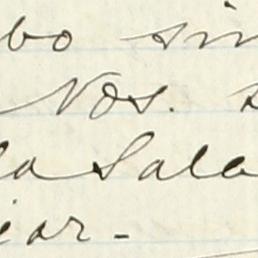 bo sin
Nos.
la Sala
iar.-